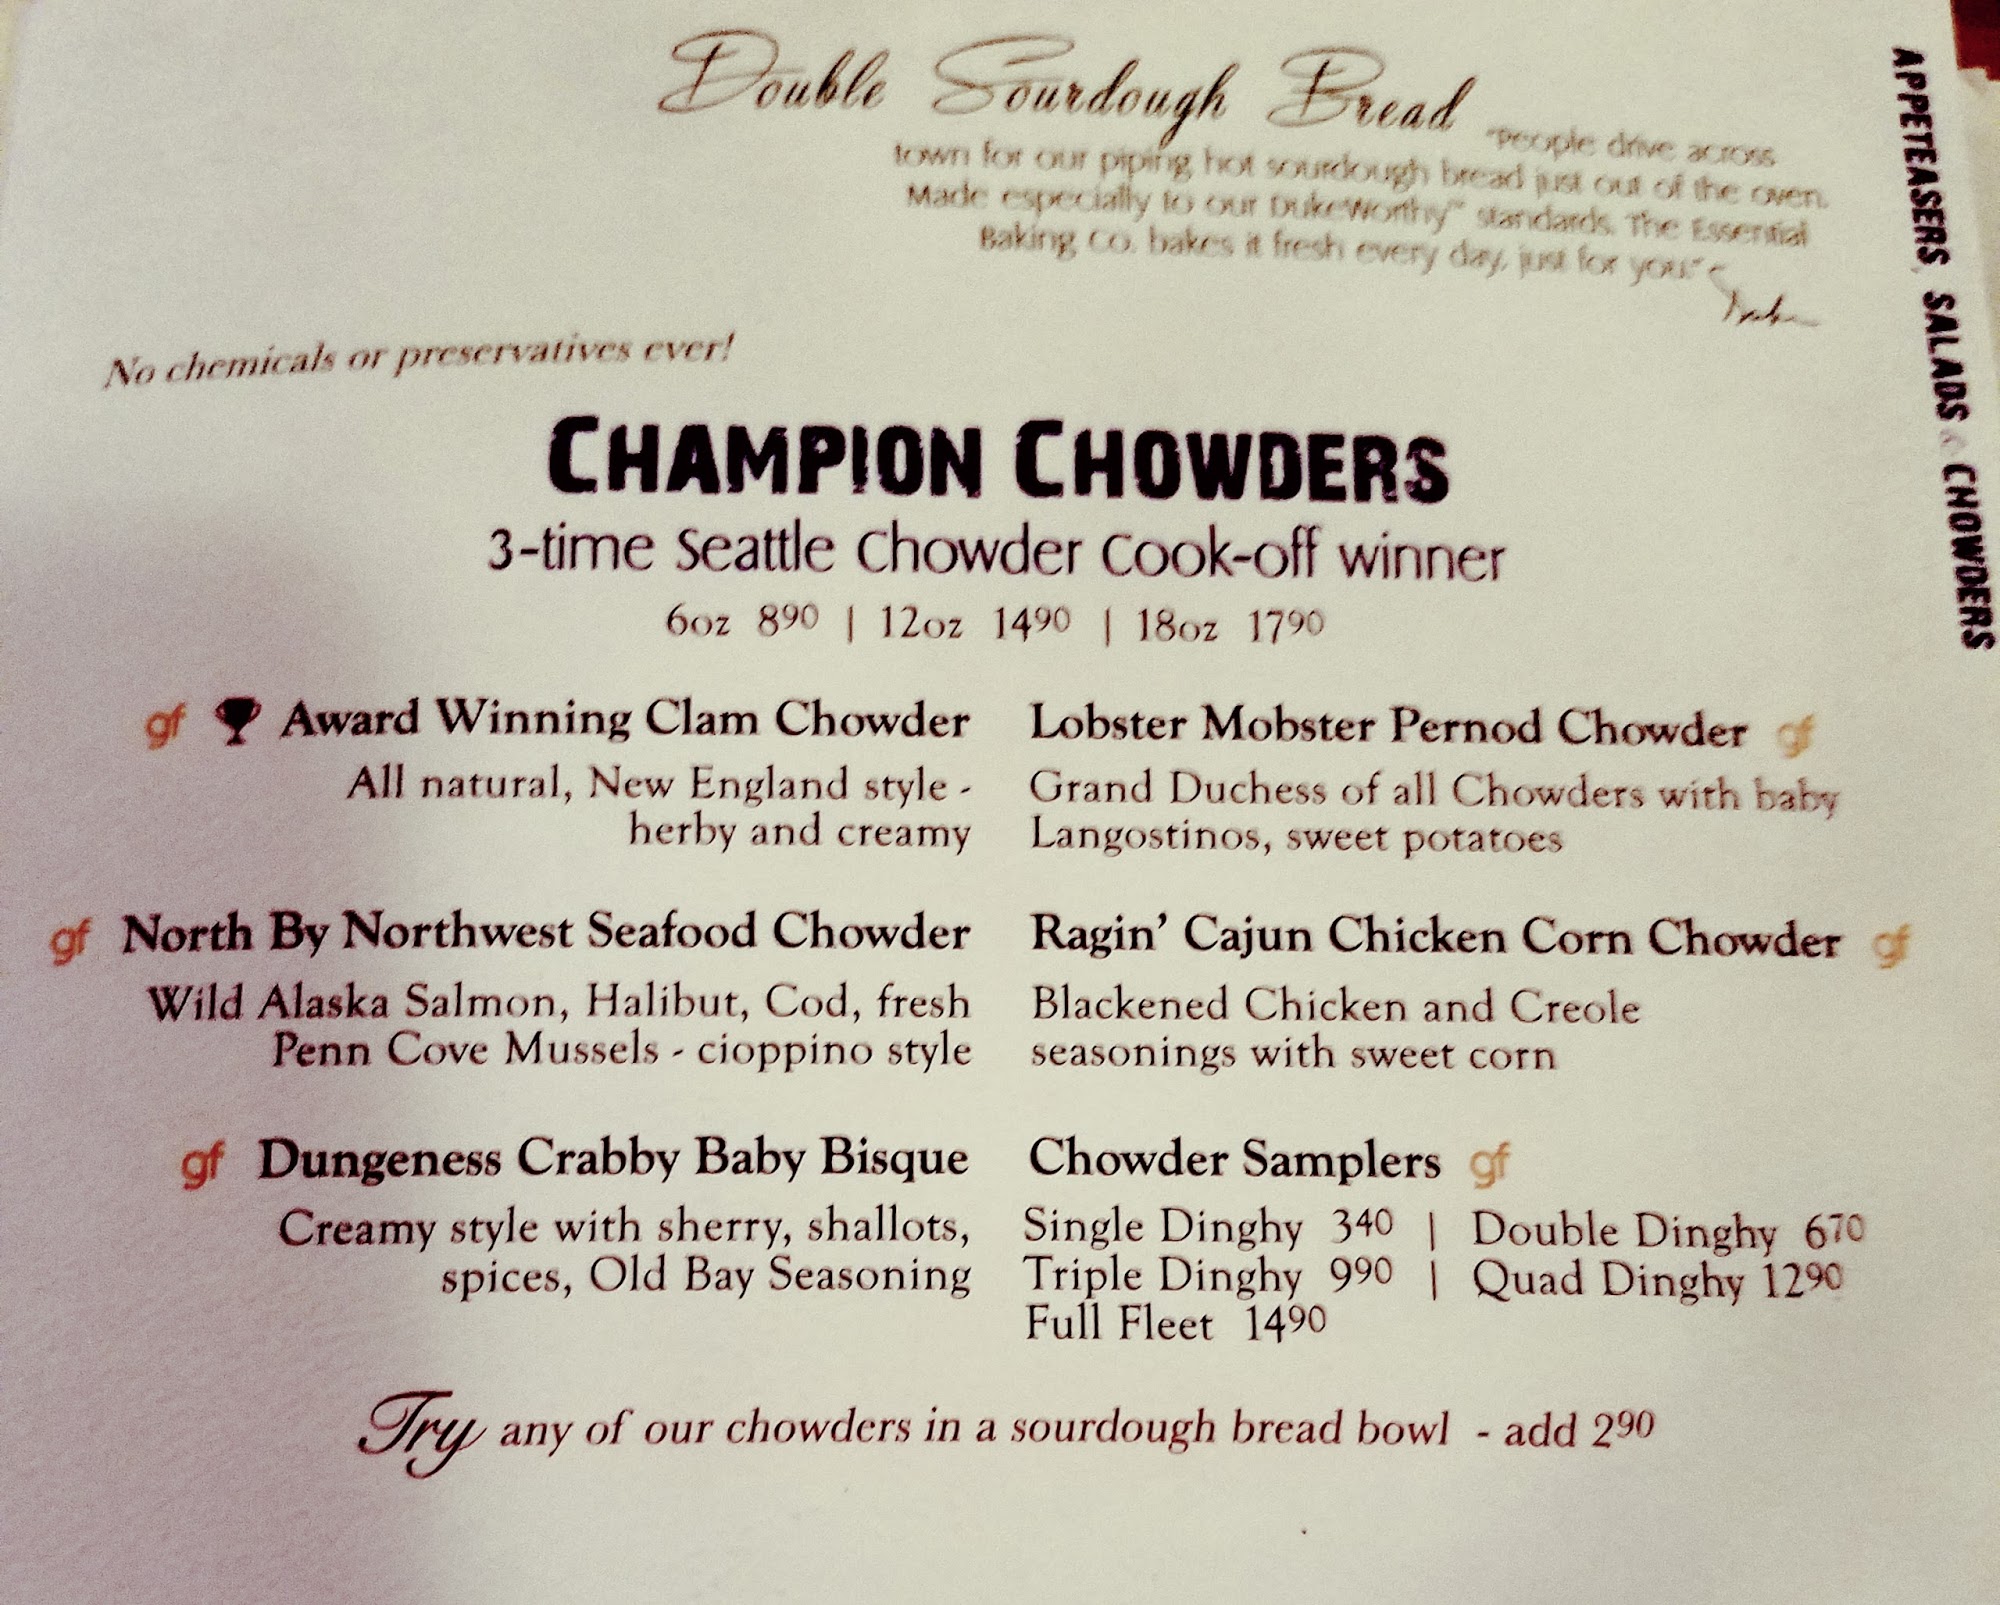 Double Sourdough Bread
"People drive across
town for our piping hot sourdough bread just out of the oven.
Made especially to our DukeWorthy™ standards. The Essential
Baking Co. bakes it fresh every day, just for you."
No chemicals or preservatives ever!
CHAMPION CHOWDERS
3-time Seattle Chowder Cook-off winner
6oz 890 | 12oz 1490 | 18oz 1790
gf Award Winning Clam Chowder
All natural, New England style -
herby and creamy
Lobster Mobster Pernod Chowder gf
Grand Duchess of all Chowders with baby
Langostinos, sweet potatoes
gf North By Northwest Seafood Chowder
Wild Alaska Salmon, Halibut, Cod, fresh
Penn Cove Mussels - cioppino style
Ragin' Cajun Chicken Corn Chowder gf
Blackened Chicken and Creole
seasonings with sweet corn
gf Dungeness Crabby Baby Bisque
Creamy style with sherry, shallots,
spices, Old Bay Seasoning
Chowder Samplers gf
Single Dinghy 340 | Double Dinghy 670
Triple Dinghy 990 | Quad Dinghy 1290
Full Fleet 1490
Try any of our chowders in a sourdough bread bowl - add 290
APPETEASERS, SALADS & CHOWDERS